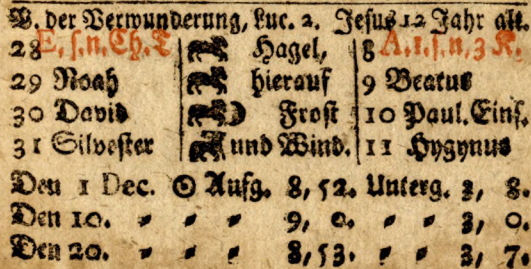 V. der Verwunderung, Luc. 2. Jesus 12 Jahr alt.
28 E. s. n. Ch. T Hagel, 8 A. 1. s. n. 3 K.
29 Noah hierauf 9 Beatus
30 David Frost 10 Paul. Eins.
31 Silvester und Wind. 11 Hygynus
Den 1 Dec. ☉ Aufg. 8, 52. Unterg. 3, 8.
Den 10. " " " 9, 0. " " 3, 0.
Den 20. " " " 8, 53. " " 3, 7.